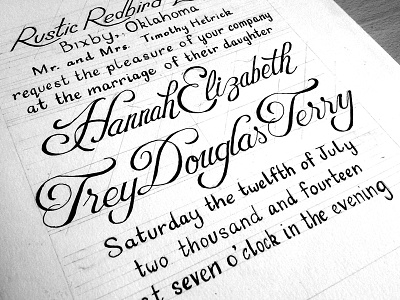 Rustic Redbird
Bixby, Oklahoma
Mr. and Mrs. Timothy Hetrick
request the pleasure of your company
at the marriage of their daughter
Hannah Elizabeth
Trey Douglas Terry
Saturday the twelfth of July
two thousand and fourteen
at seven o'clock in the evening